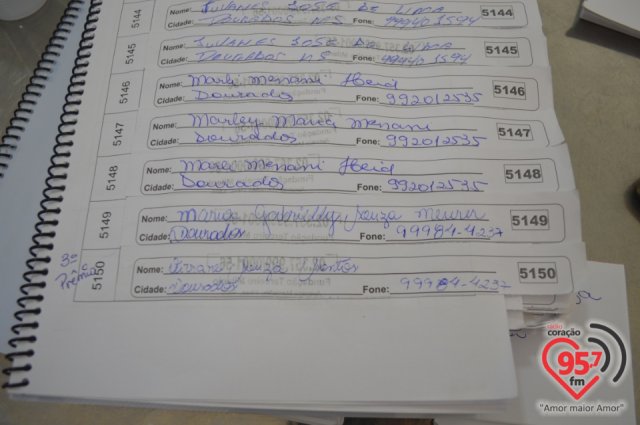 5144
Nome: JULANES JOSE DE LIMA
Cidade: DOURADOS MS Fone: 999401594
5144
5145
Nome: JULANES JOSE DE LIMA
Cidade: DOURADOS MS Fone: 999401594
5145
5146
Nome: Marli Menani Heid
Cidade: Dourados Fone: 992012535
5146
5147
Nome: Marley Maria Menani
Cidade: Dourados Fone: 992012535
5147
5148
Nome: Marli Menani Heid
Cidade: Dourados Fone: 992012535
5148
5149
Nome: Maria Gabrielly Souza
Cidade: Dourados Fone: 99984-4237
5149
3º Prêmio
5150
Nome: Souza
Cidade: Dourados Fone: 99984-4237
5150
rádio
coração
95.7
fm
"Amor maior Amor"